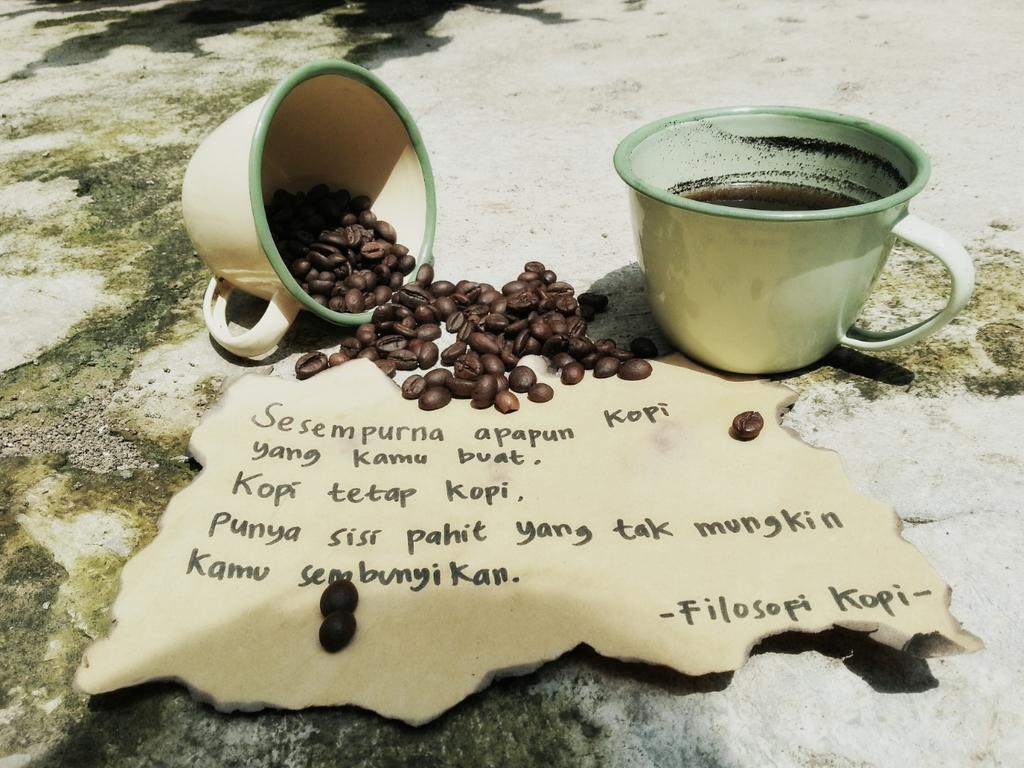 Sesempurna apapun Kopi
yang Kamu buat.
Kopi tetap Kopi,
Punya sisi pahit yang tak mungkin
Kamu sembunyikan.
-Filosofi Kopi-